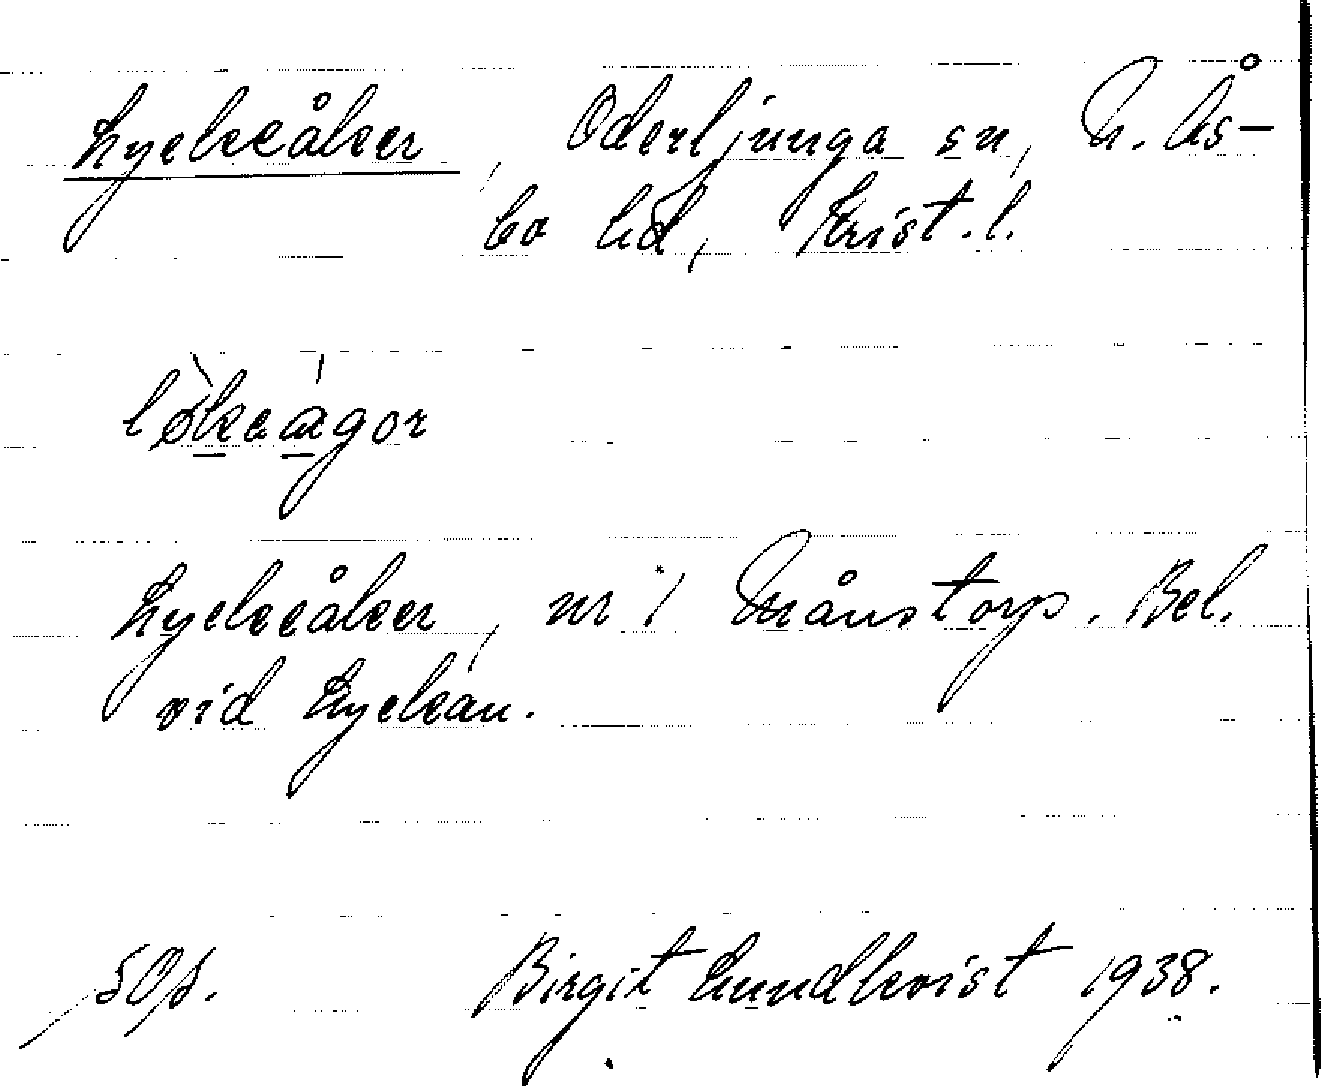 Lyckeåker, Oderljunga sn, N. Ås-
bo hd, Krist. l.
løkeågor
Lyckeåker, nr 1 Månstorp. Bel.
vid Lyckan.
Birgit Lundkvist 1938.